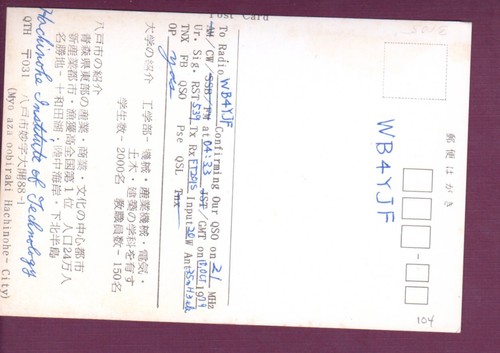 Post Card
郵便はがき
WB4YJF
To Radio WB4YJF Confirming Our QSO on 21 MHz
AM CW SSB FM at 04:33 JST/GMT on 12.Oct 1979
Ur. Sig. RST 539 Tx Rx FT201S Input 20 W Ant
TNX FB QSO Pse QSL Tnx
OP
大学の紹介 工学部-機械・産業機械・電気・
土木・建築の学科を有す
学生数-2000名 教職員数-150名
八戸市の紹介
青森県東部の産業・商業・文化の中心都市
新産業都市・漁獲高全国第1位 人口24万人
名勝地-十和田湖・陸中海岸・下北半島
Hachinohe Institute of Technology
QTH 〒031 八戸市妙字大開88-1
(Myo aza oobiraki Hachinohe-City)
104